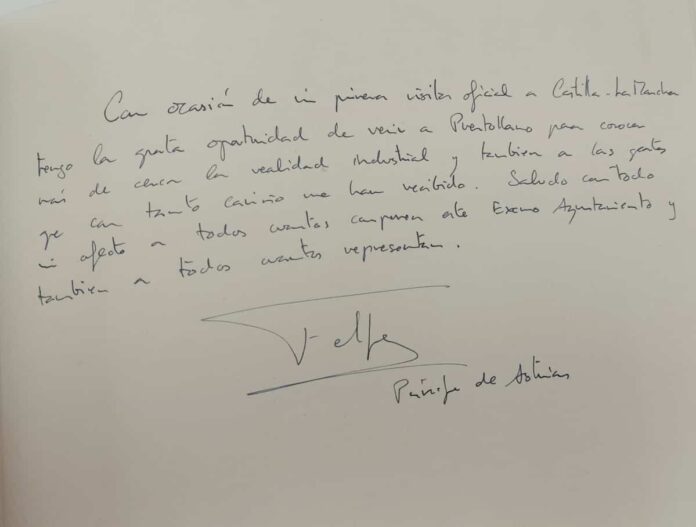 Con ocasión de mi primera visita oficial a Castilla-La Mancha
tengo la grata oportunidad de venir a Puertollano para conocer
más de cerca la realidad industrial y tambien a las gentes
que con tanto cariño me han recibido. Saludo con todo
mi afecto a todos cuantos componen este Excmo Ayuntamiento y
tambien a todos cuantos representan.
Felipe
Príncipe de Asturias